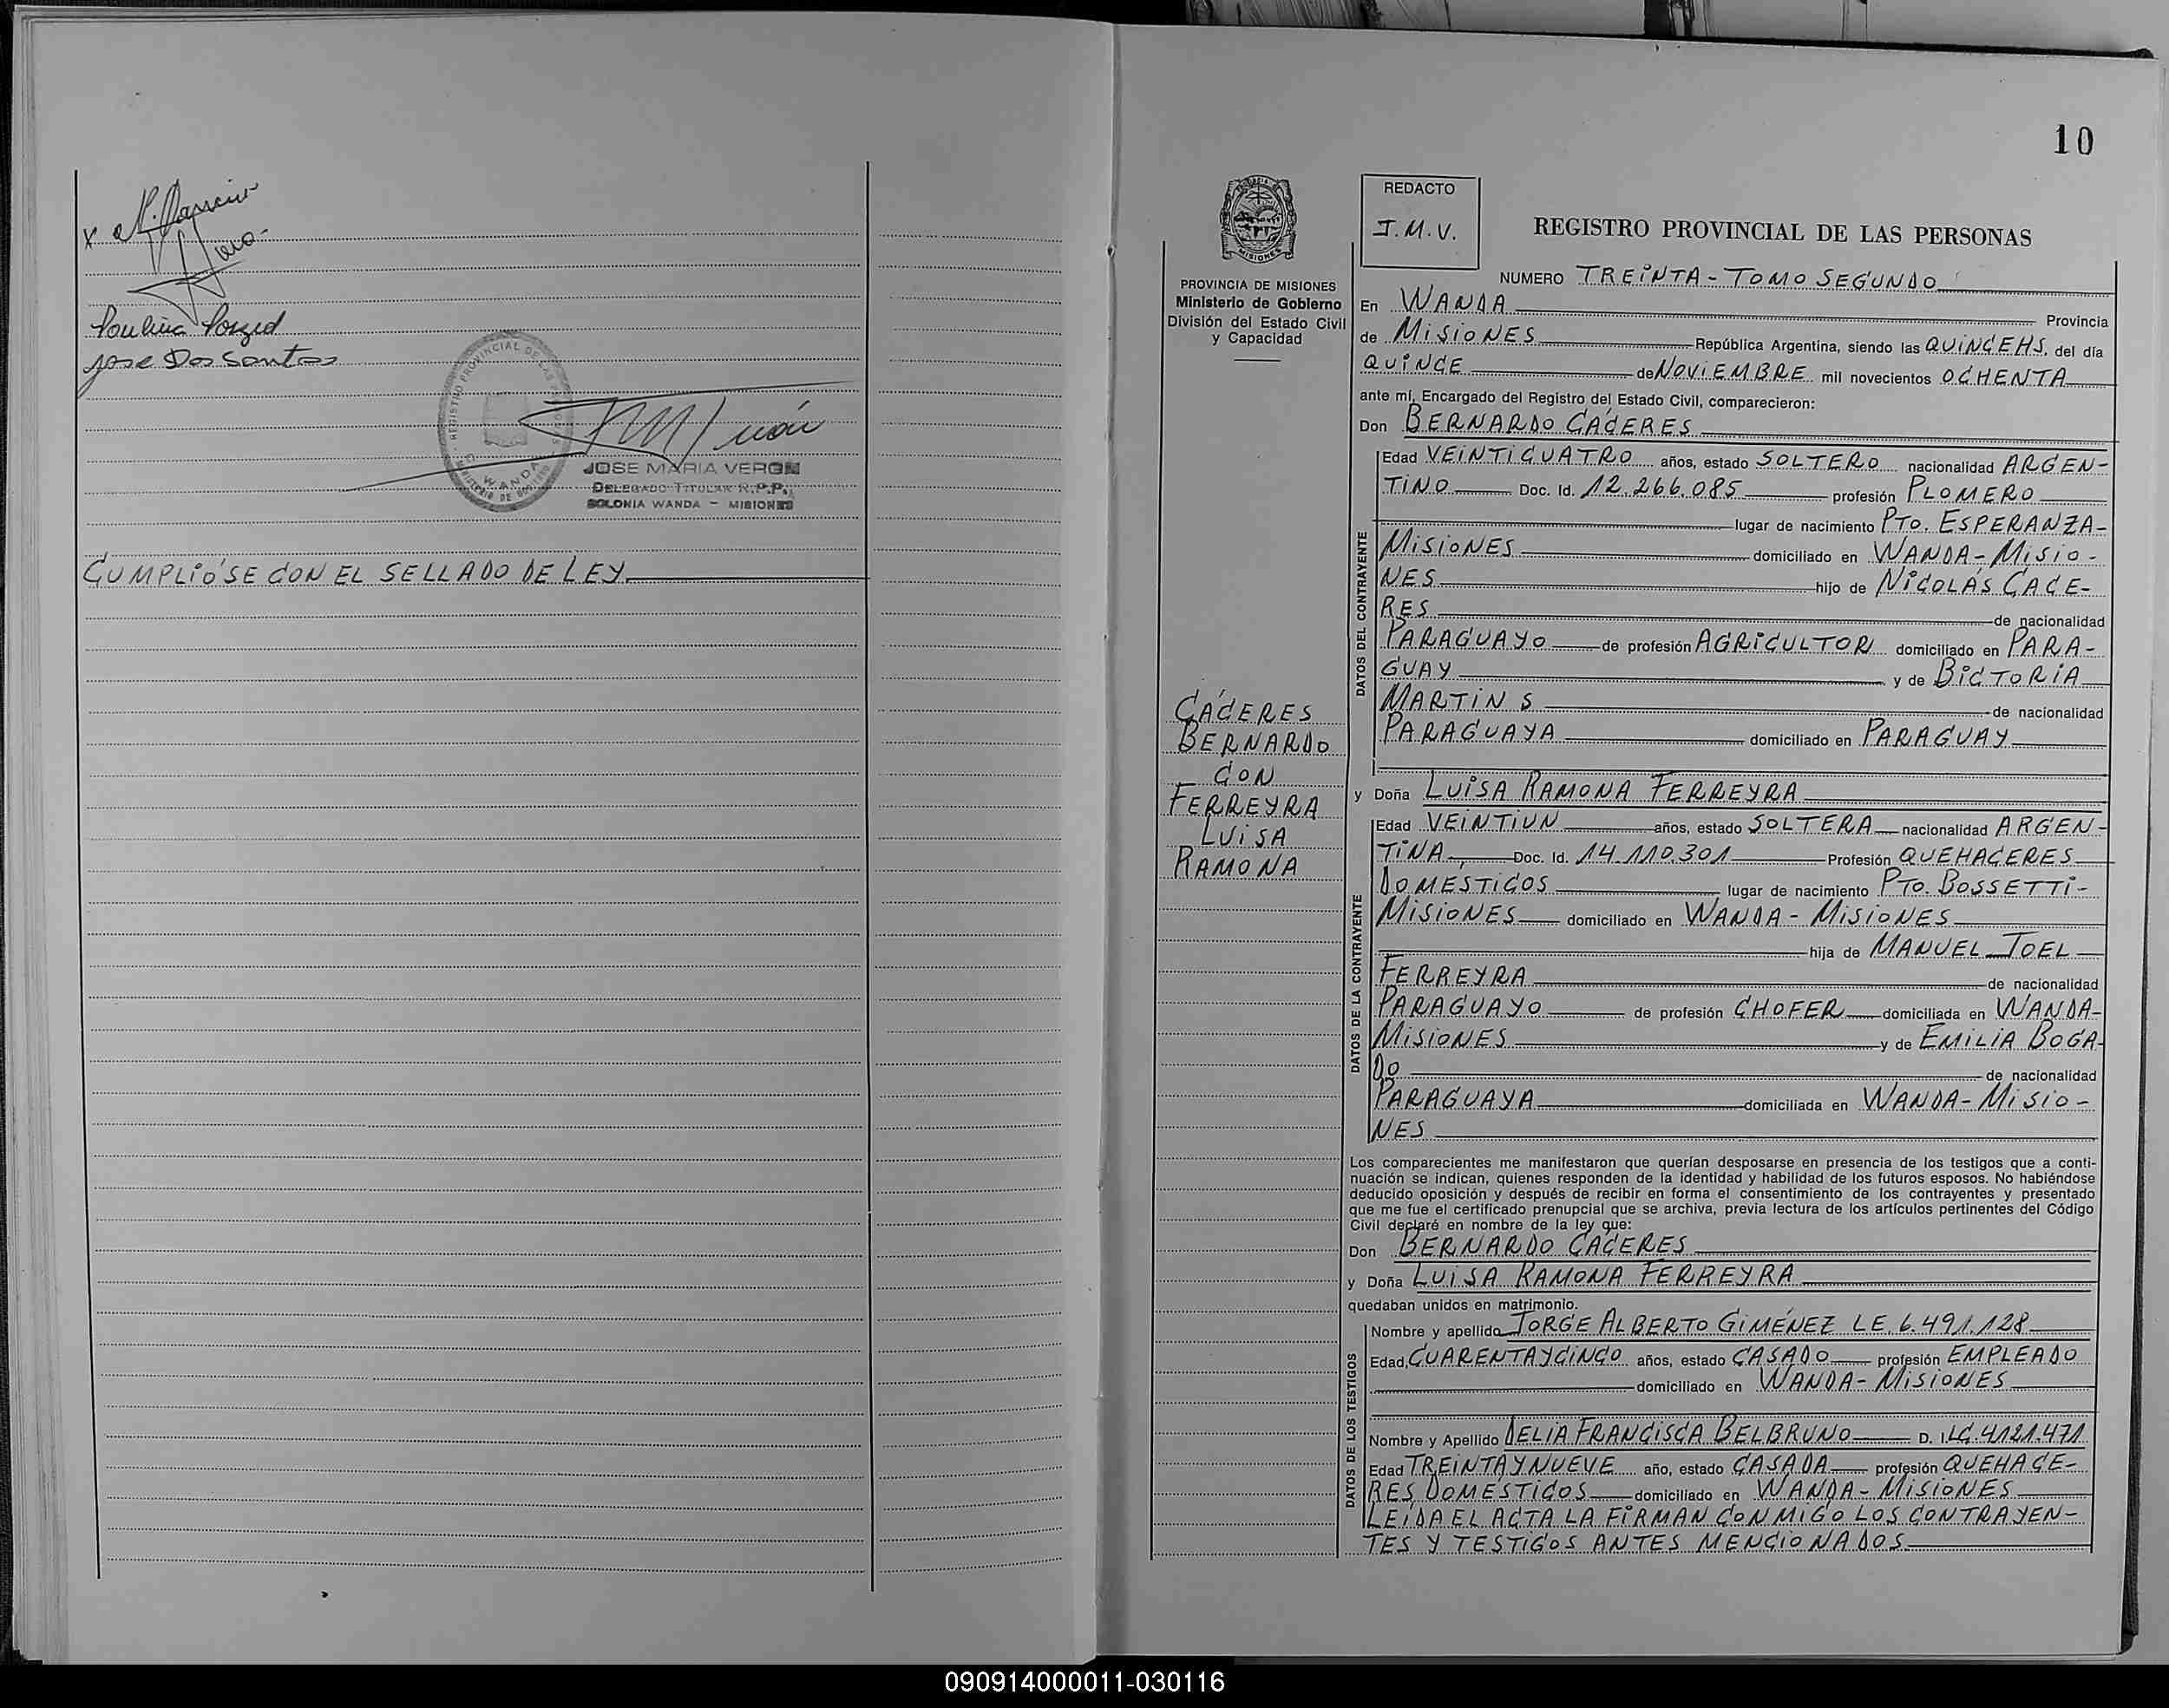 Paulina
Jose Dos Santos
REGISTRO PROVINCIAL DE LAS
WANDA
JOSE MARIA VERON
DELEGADO TITULAR R.P.P.
COLONIA WANDA - MISIONES
CUMPLIÓSE CON EL SELLADO DE LEY.
10
PROVINCIA DE MISIONES
Ministerio de Gobierno
División del Estado Civil
y Capacidad
CÁCERES
BERNARDO
CON
FERREYRA
LUISA
RAMONA
REDACTO
J.M.V.
REGISTRO PROVINCIAL DE LAS PERSONAS
NUMERO TREINTA - TOMO SEGUNDO
En WANDA Provincia
de MISIONES República Argentina, siendo las QUINCE HS. del día
QUINCE de NOVIEMBRE mil novecientos OCHENTA
ante mí, Encargado del Registro del Estado Civil, comparecieron:
Don BERNARDO CÁCERES
DATOS DEL CONTRAYENTE
Edad VEINTICUATRO años, estado SOLTERO nacionalidad ARGEN-
TINO Doc. Id. 12.266.085 profesión PLOMERO
lugar de nacimiento PTO. ESPERANZA-
MISIONES domiciliado en WANDA - MISIO-
NES hijo de NICOLÁS CACE-
RES de nacionalidad
PARAGUAYO de profesión AGRICULTOR domiciliado en PARA-
GUAY y de BICTORIA
MARTINS de nacionalidad
PARAGUAYA domiciliado en PARAGUAY
y Doña LUISA RAMONA FERREYRA
DATOS DE LA CONTRAYENTE
Edad VEINTIUN años, estado SOLTERA nacionalidad ARGEN-
TINA Doc. Id. 14.110.301 Profesión QUEHACERES
DOMESTICOS lugar de nacimiento PTO. BOSSETTI-
MISIONES domiciliado en WANDA - MISIONES
hija de MANUEL JOEL
FERREYRA de nacionalidad
PARAGUAYO de profesión CHOFER domiciliada en WANDA-
MISIONES y de EMILIA BOGA-
DO de nacionalidad
PARAGUAYA domiciliada en WANDA - MISIO-
NES
Los comparecientes me manifestaron que querían desposarse en presencia de los testigos que a conti-
nuación se indican, quienes responden de la identidad y habilidad de los futuros esposos. No habiéndose
deducido oposición y después de recibir en forma el consentimiento de los contrayentes y presentado
que me fue el certificado prenupcial que se archiva, previa lectura de los artículos pertinentes del Código
Civil declaré en nombre de la ley que:
Don BERNARDO CACERES
y Doña LUISA RAMONA FERREYRA
quedaban unidos en matrimonio.
DATOS DE LOS TESTIGOS
Nombre y apellido JORGE ALBERTO GIMÉNEZ L.E. 6.491.128
Edad CUARENTA Y CINCO años, estado CASADO profesión EMPLEADO
domiciliado en WANDA - MISIONES
Nombre y Apellido DELIA FRANCISCA BELBRUNO D. I. LC. 4121.471
Edad TREINTA Y NUEVE año, estado CASADA profesión QUEHACE-
RES DOMESTICOS domiciliado en WANDA - MISIONES
LEIDA EL ACTA LA FIRMAN CONMIGO LOS CONTRAYEN-
TES Y TESTIGOS ANTES MENCIONADOS
090914000011-030116